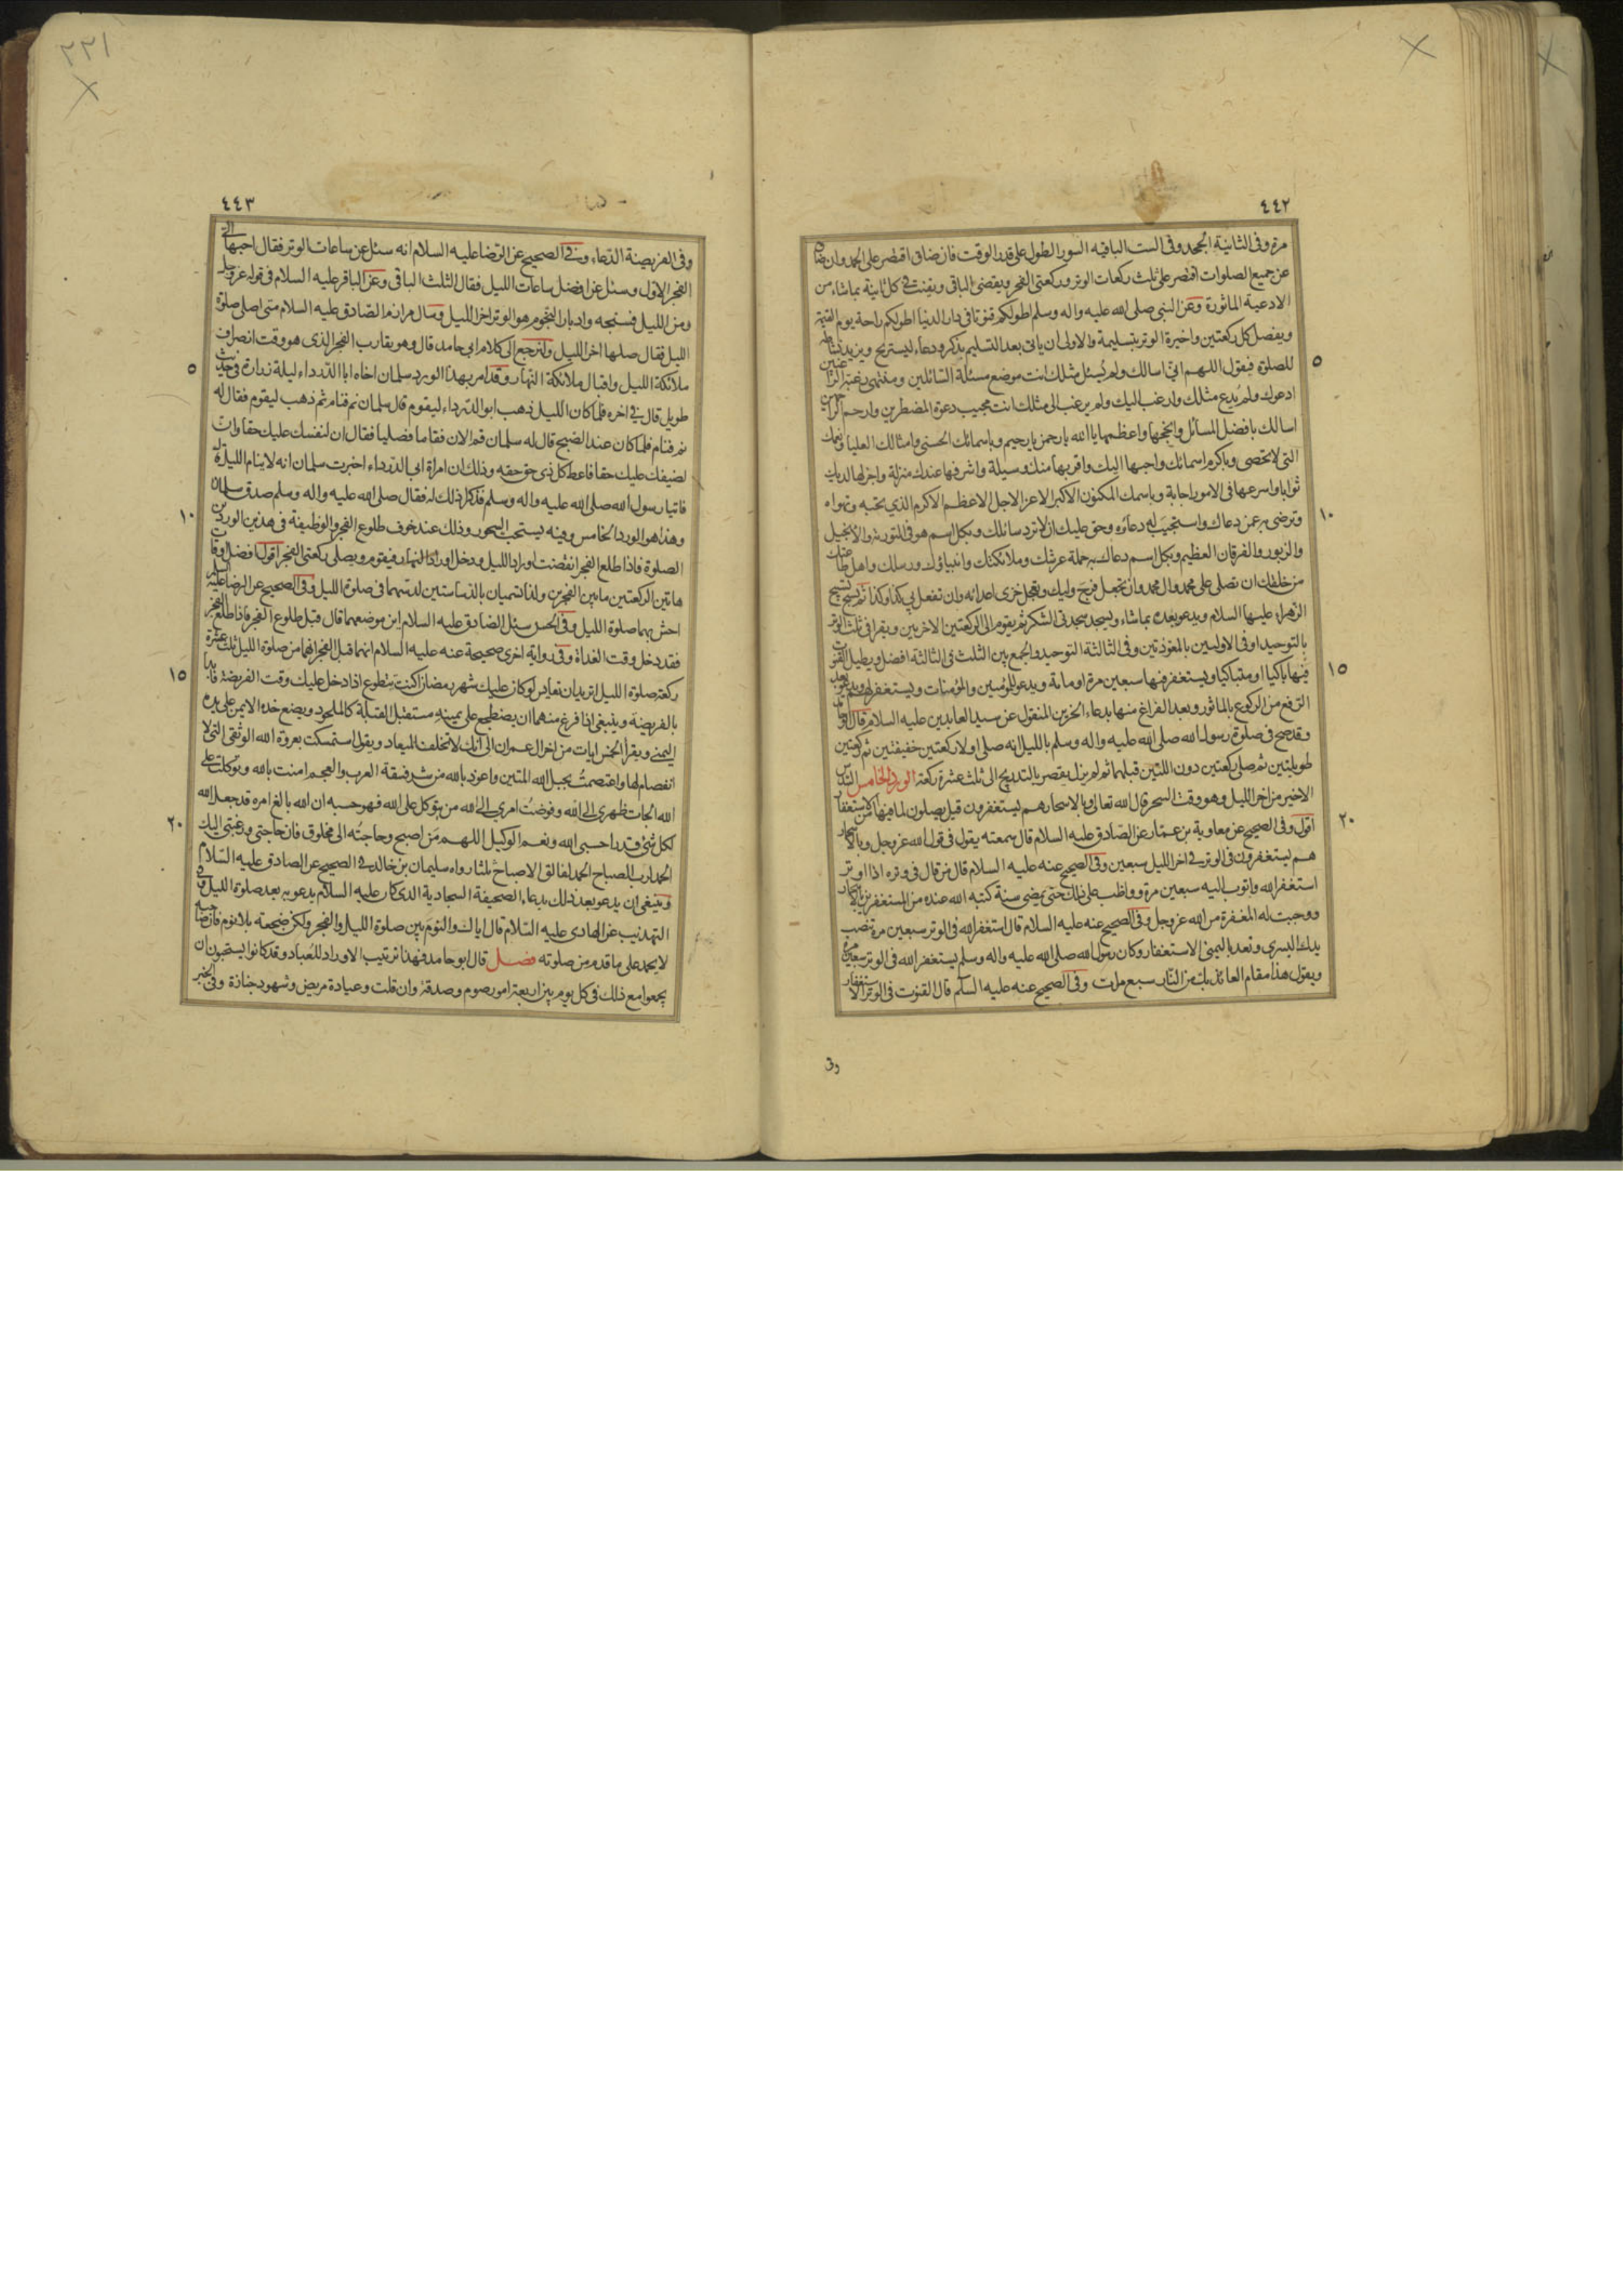 ٤٤٢
مرة وفى الثانية الحمد وفى الست الباقيه السور الطول على قدر الوقت فان ضاق اقتصر على الحمد وان ضاق
عن جميع الصلوات اقتصر على ثلث ركعات الوتر وركعتى الفجر ويقضى الباقى ويقنت فى كل ثانية بما شاء من
الادعية الماثورة وعن النبى صلى الله عليه واله وسلم اطولكم قنوتا فى دار الدنيا اطولكم راحة يوم القيمة
ويفصل كل ركعتين واخيرة الوتر بتسليمة والاولى ان ياتى بعد التسليم بذكر ودعاء ليستريح ويزيد نشاطه
للصلوة فيقول اللهم انى اسالك ولم يُسئل مثلك انت موضع مسئلة السائلين ومنتهى رغبة الراغبين
ادعوك ولم يُدع مثلك وارغب اليك ولم يرغب الى مثلك انت مجيب دعوة المضطرين وارحم الراحمين
اسالك بافضل المسائل وانجحها واعظمها يا الله يا رحمن يا رحيم وباسمائك الحسنى وامثالك العليا ونعمك
التى لا تحصى وباكرم اسمائك واحبها اليك واقربها منك وسيلة واشرفها عندك منزلة واجزلها لديك
ثوابا واسرعها فى الامور اجابة وباسمك المكنون الاكبر الاعز الاجل الاعظم الاكرم الذى تحبه وتهواه
وترضى به عمن دعاك واستجيب له دعاؤه وحق عليك ان لا ترد سائلك وبكل اسم هو فى التورية والانجيل
والزبور والفرقان العظيم وبكل اسم دعاك به حملة عرشك وملائكتك وانبياؤك ورسلك واهل طاعتك
من خلقك ان تصلى على محمد وال محمد وان تعجل فرج وليك وتعجل خزى اعدائه وان تفعل بى كذا وكذا ثم يسبح تسبيح
الزهراء عليها السلام ويدعو بعده بما شاء ويسجد سجدتى الشكر ثم يقوم الى الركعتين الاخريين ويقرأ فى ثلث الوتر
بالتوحيد او فى الاوليين بالمعوذتين وفى الثالثة التوحيد والجمع بين الثلث فى الثالثة افضل ويطيل القنوت
فيها باكيا او متباكيا ويستغفر فيها سبعين مرة او مائة ويدعو للمؤمنين والمؤمنات ويستغفر لهم ويدعو بعد
الرفع من الركوع بالماثور وبعد الفراغ منها بدعاء الحزين المنقول عن سيد العابدين عليه السلام قال ابو حامد
وقد صح فى صلوة رسول الله صلى الله عليه واله وسلم بالليل انه صلى اولا ركعتين خفيفتين ثم ركعتين
طويلتين ثم صلى ركعتين دون اللتين قبلهما ثم لم يزل يقصر بالتدريج الى ثلث عشرة ركعة الورد الخامس السدس
الاخير من اخر الليل وهو وقت السحر قال الله تعالى وبالاسحار هم يستغفرون قيل يصلون لما فيها من الاستغفار
اقول وفى الصحيح عن معاوية بن عمار عن الصادق عليه السلام قال سمعته يقول فى قول الله عز وجل وبالاسحار
هم يستغفرون فى الوتر فى اخر الليل سبعين وفى الصحيح عنه عليه السلام قال من قال فى وتره اذا اوتر
استغفر الله واتوب اليه سبعين مرة وواظب على ذلك حتى يمضى سنة كتبه الله عنده من المستغفرين بالاسحار
ووجبت له المغفرة من الله عز وجل وفى الصحيح عنه عليه السلام قال استغفر الله فى الوتر سبعين مرة تنصب
يدك اليسرى وتعد باليمنى الاستغفار وكان رسول الله صلى الله عليه واله وسلم يستغفر الله فى الوتر سبعين مرة
ويقول هذا مقام العائذ بك من النار سبع مرات وفى الصحيح عنه عليه السلم قال القنوت فى الوتر الاستغفار
٥
١٠
١٥
٢٠
وفى
٢٢١
٤٤٣
وفى الفريضة الدعاء وفى الصحيح عن الرضا عليه السلام انه سئل عن ساعات الوتر فقال احبها الى
الفجر الاول وسئل عن افضل ساعات الليل فقال الثلث الباقى وعن الباقر عليه السلام فى قوله عز وجل
ومن الليل فسبحه وادبار النجوم هو الوتر اخر الليل وسال مرازم الصادق عليه السلام متى اصلى صلوة
الليل فقال صلها اخر الليل ولنرجع الى كلام ابى حامد قال وهو يقارب الفجر الذى هو وقت انصراف
ملائكة الليل واقبال ملائكة النهار وقد امر بهذا الورد سلمان اخاه ابا الدرداء ليلة زاره فى حديث
طويل قال فى اخره فلما كان الليل ذهب ابو الدرداء ليقوم قال سلمان نم فنام ثم ذهب ليقوم فقال له
نم فنام فلما كان عند الصبح قال له سلمان قم الان فقاما فصليا فقال ان لنفسك عليك حقا وان
لضيفك عليك حقا فاعط كل ذى حق حقه وذلك ان امراة ابى الدرداء اخبرت سلمان انه لا ينام الليل قال
فاتيا رسول الله صلى الله عليه واله وسلم فذكرا ذلك له فقال صلى الله عليه واله وسلم صدق سلمان
وهذا هو الورد الخامس وفيه يستحب السحور وذلك عند خوف طلوع الفجر والوظيفة فى هذين الوردين
الصلوة فاذا طلع الفجر انقضت اوراد الليل ودخل اوراد النهار فيقوم ويصلى ركعتى الفجر اقول افضل اوقات
هاتين الركعتين ما بين الفجرين ولذا تسميان بالدساستين لدسهما فى صلوة الليل وفى الصحيح عن الرضا عليه السلم
احش بهما صلوة الليل وفى الحسن سئل الصادق عليه السلام اين موضعهما قال قبل طلوع الفجر فاذا طلع الفجر
فقد دخل وقت الغداة وفى رواية اخرى صحيحة عنه عليه السلام انهما قبل الفجر انهما من صلوة الليل ثلث عشرة
ركعة صلوة الليل اتريد ان تقايس لو كان عليك شهر رمضان اكنت تتطوع اذا دخل عليك وقت الفريضة فابدا
بالفريضة وينبغى اذا فرغ منهما ان يضطجع على يمينه مستقبل القبلة كالملحود ويضع خده الايمن على يده
اليمنى ويقرأ الخمس ايات من اخر ال عمران الى انك لا تخلف الميعاد ويقول استمسكت بعروة الله الوثقى التى لا
انفصام لها واعتصمتُ بحبل الله المتين واعوذ بالله من شر فسقة العرب والعجم امنت بالله وتوكلت على
الله الجات ظهرى الى الله وفوضت امرى الى الله من يتوكل على الله فهو حسبه ان الله بالغ امره قد جعل الله
لكل شئ قدرا حسبى الله ونعم الوكيل اللهم من اصبح وحاجتُه الى مخلوق فان حاجتى ورغبتى اليك
الحمد لرب الصباح الحمد لفالق الاصباح ثلثا رواه سليمان بن خالد فى الصحيح عن الصادق عليه السّلام
وينبغى ان يدعو بعد ذلك بدعاء الصحيفة السجادية الذى كان عليه السلام يدعو به بعد صلوة الليل وفى
التهذيب عن الهادى عليه السّلام قال اياك والنومَ بين صلوة الليل والفجر ولكن ضجعته بلا نوم فان صاحبه
لا يحمد على ما قدم من صلوته فصل قال ابو حامد فهذا ترتيب الاوراد للعُباد وقد كانوا يستحبون ان
يجمعوا مع ذلك فى كل يوم بين اربعة امور صوم وصدقة وان قلت وعيادة مريض وشهود جنازة وفى الخبر
٥
١٠
١٥
٢٠